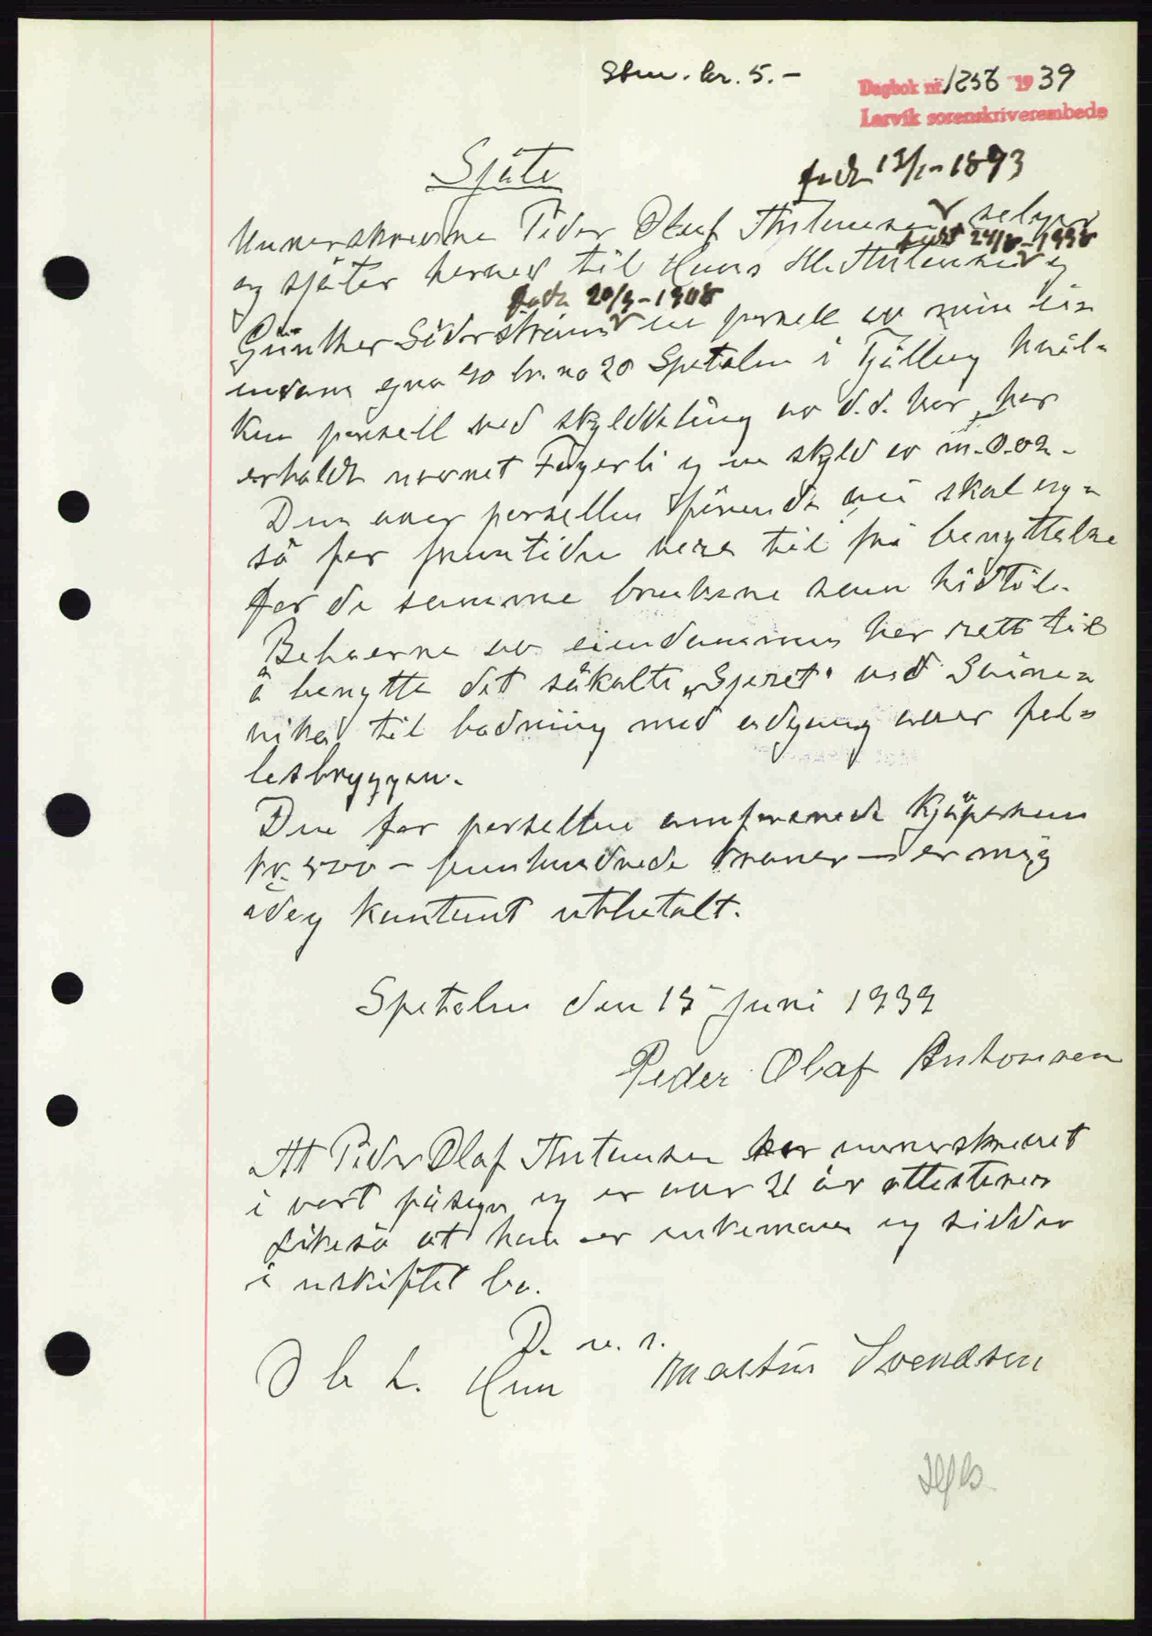 Stm. kr. 5.-
Dagbok nr. 1256 1939
Larvik sorenskriverembede
født 13/1-1893
Sjøte
Unnerskrevne Peder Olaf Antonsen selger
født 24/8-1938
og sjøter herved til Hans H. Antonsen og
født 20/9-1908
Günther Söderström en parsell av min ei=
endom gno 40 br. no 20 Spetalen i Tjølling hvil=
ken parsell ved skylddeling av d.d. har, har
erholdt navnet Fagerli og en skyld av m. 0.02.
Den over parsellen førende vei skal og=
så for fremtiden være til fri benyttelse
for de samme brukerne som hidtil.
Beboerne av eiendommen har rett til
å benytte det såkalte „ " ved
vika til badning med adgang over fel=
lesbryggen.
Den for parsellen omforenede kjøpesum
kr. 500 - femhundrede kroner - er mig
idag kontant utbetalt.
Spetalen den 15 juni 1939
Peder Olaf Antonsen
At Peder Olaf Antonsen har unnerskrevet
i vort påsyn og er over 21 år attesteres
Likeså at han er enkemann og sidder
i uskiftet bo.
D. u. s.
Martin Svendsen